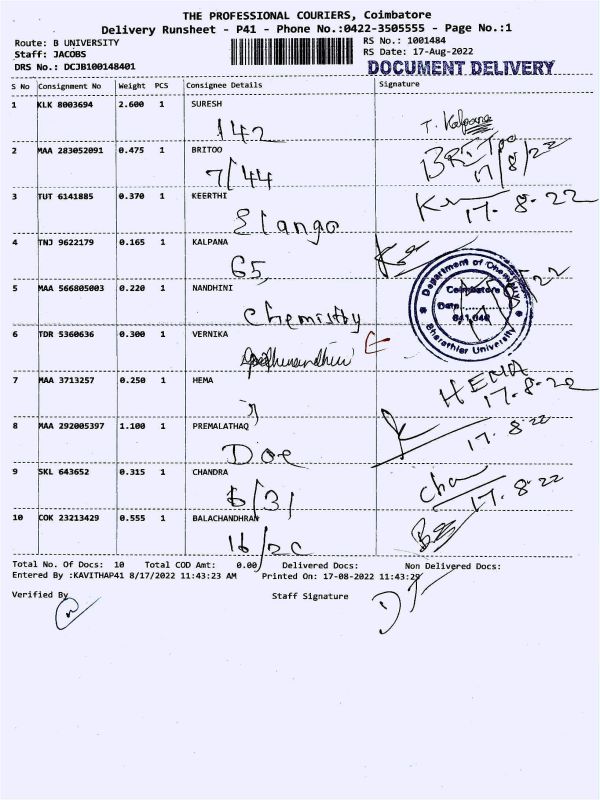 THE PROFESSIONAL COURIERS, Coimbatore
Delivery Runsheet - P41 - Phone No.:0422-3505555 - Page No.:1
Route: B UNIVERSITY
Staff: JACOBS
DRS No.: DCJB100148401
RS No.: 1001484
RS Date: 17-Aug-2022
DOCUMENT DELIVERY
S No Consignment No Weight PCS Consignee Details Signature
1 KLK 8003694 2.600 1 SURESH
142 T. Kalpana
2 MAA 283052091 0.475 1 BRITOO
7/44 17/8/22
3 TUT 6141885 0.370 1 KEERTHI
Elango 17-8-22
4 TNJ 9622179 0.165 1 KALPANA
65,
5 MAA 566805003 0.220 1 NANDHINI
Chemistry
Department of Chemistry
Coimbatore
Date
641 046
Bharathiar University
6 TDR 5360636 0.300 1 VERNIKA
7 MAA 3713257 0.250 1 HEMA
HEMA
17-8-22
8 MAA 292005397 1.100 1 PREMALATHAQ
Doe 17-8-22
9 SKL 643652 0.315 1 CHANDRA
6/31 Cha 17-8-22
10 COK 23213429 0.555 1 BALACHANDHRAN
16/20
Total No. Of Docs: 10 Total COD Amt: 0.00 Delivered Docs: Non Delivered Docs:
Entered By :KAVITHAP41 8/17/2022 11:43:23 AM Printed On: 17-08-2022 11:43:29
Verified By Staff Signature